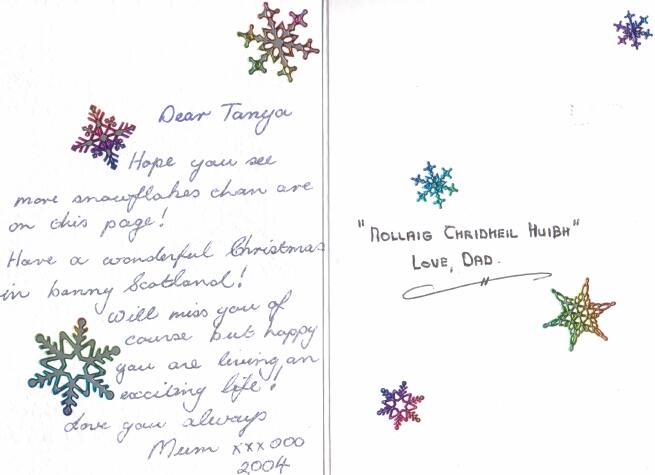 Dear Tanya
Hope you see
more snowflakes than are
on this page!
Have a wonderful Christmas
in bonny Scotland!
Will miss you of
course but happy
you are living an
exciting life!
Love you always
Mum xxx000
2004
"NOLLAIG CHRIDHEIL HUIBH"
LOVE, DAD.